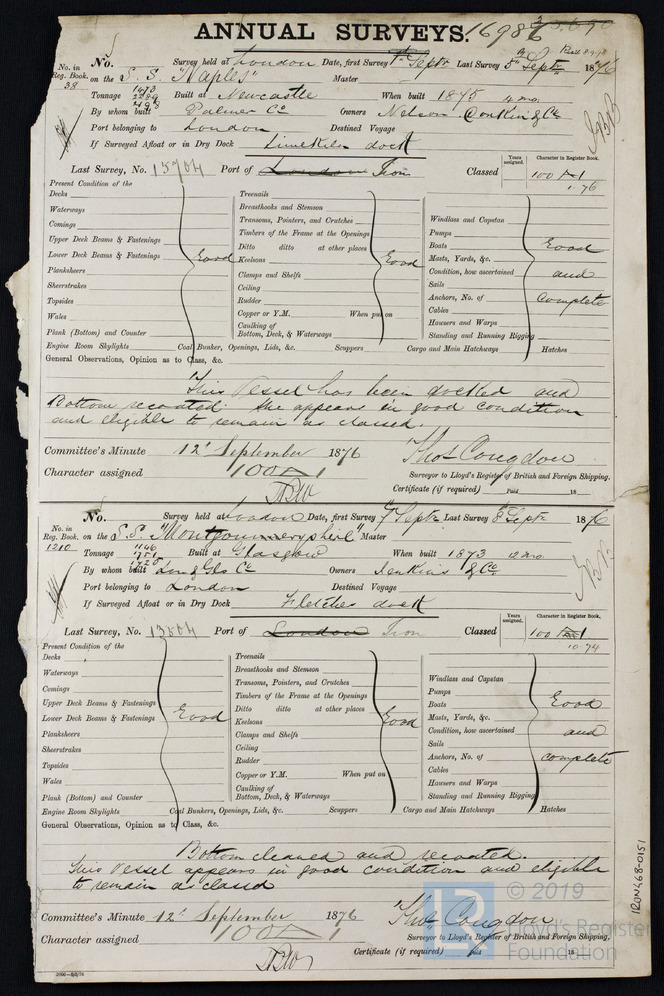 ANNUAL SURVEYS. 16986
No. Survey held at London Date, first Survey 1st Septr Last Survey 5th Septr 1876
No. in Reg. Book. 38 on the S. S. "Naples" Master
Tonnage Built at Newcastle When built 1875 4 mo.
By whom built Palmer Co Owners Nelson Conkin & Co
Port belonging to London Destined Voyage
If Surveyed Afloat or in Dry Dock Limekiln dock
Last Survey, No. 15704 Port of London Iron Classed
Years assigned. Character in Register Book.
100 A1
1.76
Present Condition of the
Decks
Waterways
Comings
Upper Deck Beams & Fastenings
Lower Deck Beams & Fastenings Good
Planksheers
Sheerstrakes
Topsides
Wales
Plank (Bottom) and Counter
Treenails
Breasthooks and Stemson
Transoms, Pointers, and Crutches
Timbers of the Frame at the Openings
Ditto ditto at other places
Keelsons Good
Clamps and Shelfs
Ceiling
Rudder
Copper or Y.M. When put on
Caulking of
Bottom, Deck, & Waterways
Windlass and Capstan
Pumps
Boats Good
Masts, Yards, &c.
Condition, how ascertained and
Sails
Anchors, No. of Complete
Cables
Hawsers and Warps
Standing and Running Rigging
Engine Room Skylights Coal Bunker, Openings, Lids, &c. Scuppers Cargo and Main Hatchways Hatches
General Observations, Opinion as to Class, &c.
This Vessel has been docked and
Bottom recoated she appears in good condition
and eligible to remain as classed.
Committee's Minute 12th September 1876 Thos Congdon
Character assigned 100 A 1 Surveyor to Lloyd's Register of British and Foreign Shipping.
Certificate (if required) Paid 18
No. Survey held at London Date, first Survey 7 Septr Last Survey 8 Septr 1876
No. in Reg. Book. 1210 on the S.S. "Montgomeryshire" Master
Tonnage 1146 Built at Glasgow When built 1873 12 mo.
By whom built Lon & Glo Co Owners Jenkins & Co
Port belonging to London Destined Voyage
If Surveyed Afloat or in Dry Dock Fletcher dock
Last Survey, No. 13804 Port of London Iron Classed
Years assigned. Character in Register Book,
100 A1
10.74
Present Condition of the
Decks
Waterways
Comings
Upper Deck Beams & Fastenings
Lower Deck Beams & Fastenings Good
Planksheers
Sheerstrakes
Topsides
Wales
Plank (Bottom) and Counter
Treenails
Breasthooks and Stemson
Transoms, Pointers, and Crutches
Timbers of the Frame at the Openings
Ditto ditto at other places
Keelsons Good
Clamps and Shelfs
Ceiling
Rudder
Copper or Y.M. When put on
Caulking of
Bottom, Deck, & Waterways
Windlass and Capstan
Pumps
Boats Good
Masts, Yards, &c.
Condition, how ascertained and
Sails
Anchors, No. of complete
Cables
Hawsers and Warps
Standing and Running Rigging
Engine Room Skylights Coal Bunkers, Openings, Lids, &c. Scuppers Cargo and Main Hatchways Hatches
General Observations, Opinion as to Class, &c.
Bottom cleaned and recoated.
This Vessel appears in good condition and eligible
to remain as classed
Committee's Minute 12th September 1876 Thos Congdon
Character assigned 100 A 1 Surveyor to Lloyd's Register of British and Foreign Shipping.
Certificate (if required) 18
IRON468-0151
© 2019
Lloyd's Register
Foundation